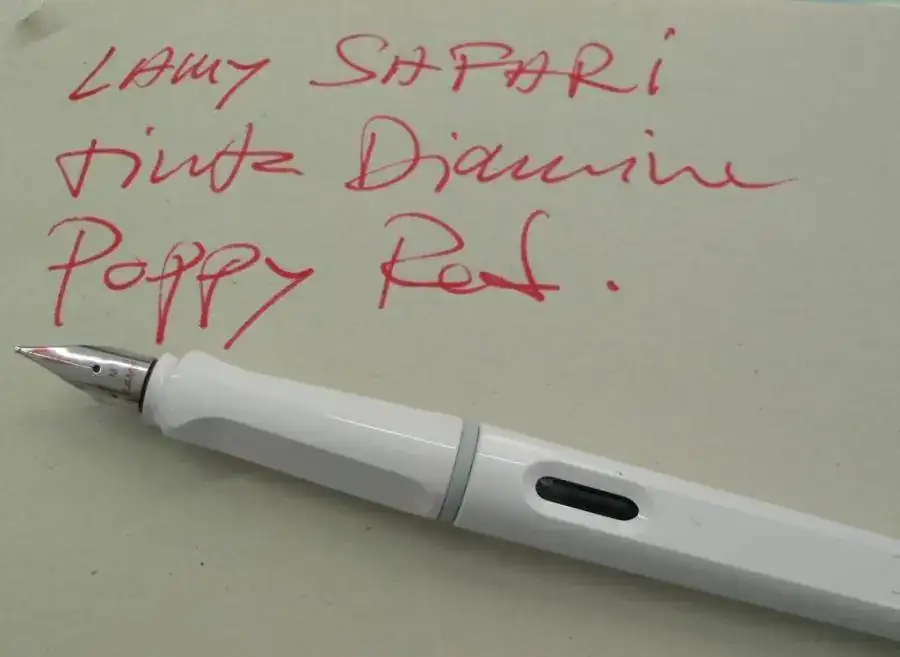 LAMY SAFARi
tinta Diamine
Poppy Red.
M
LAMY